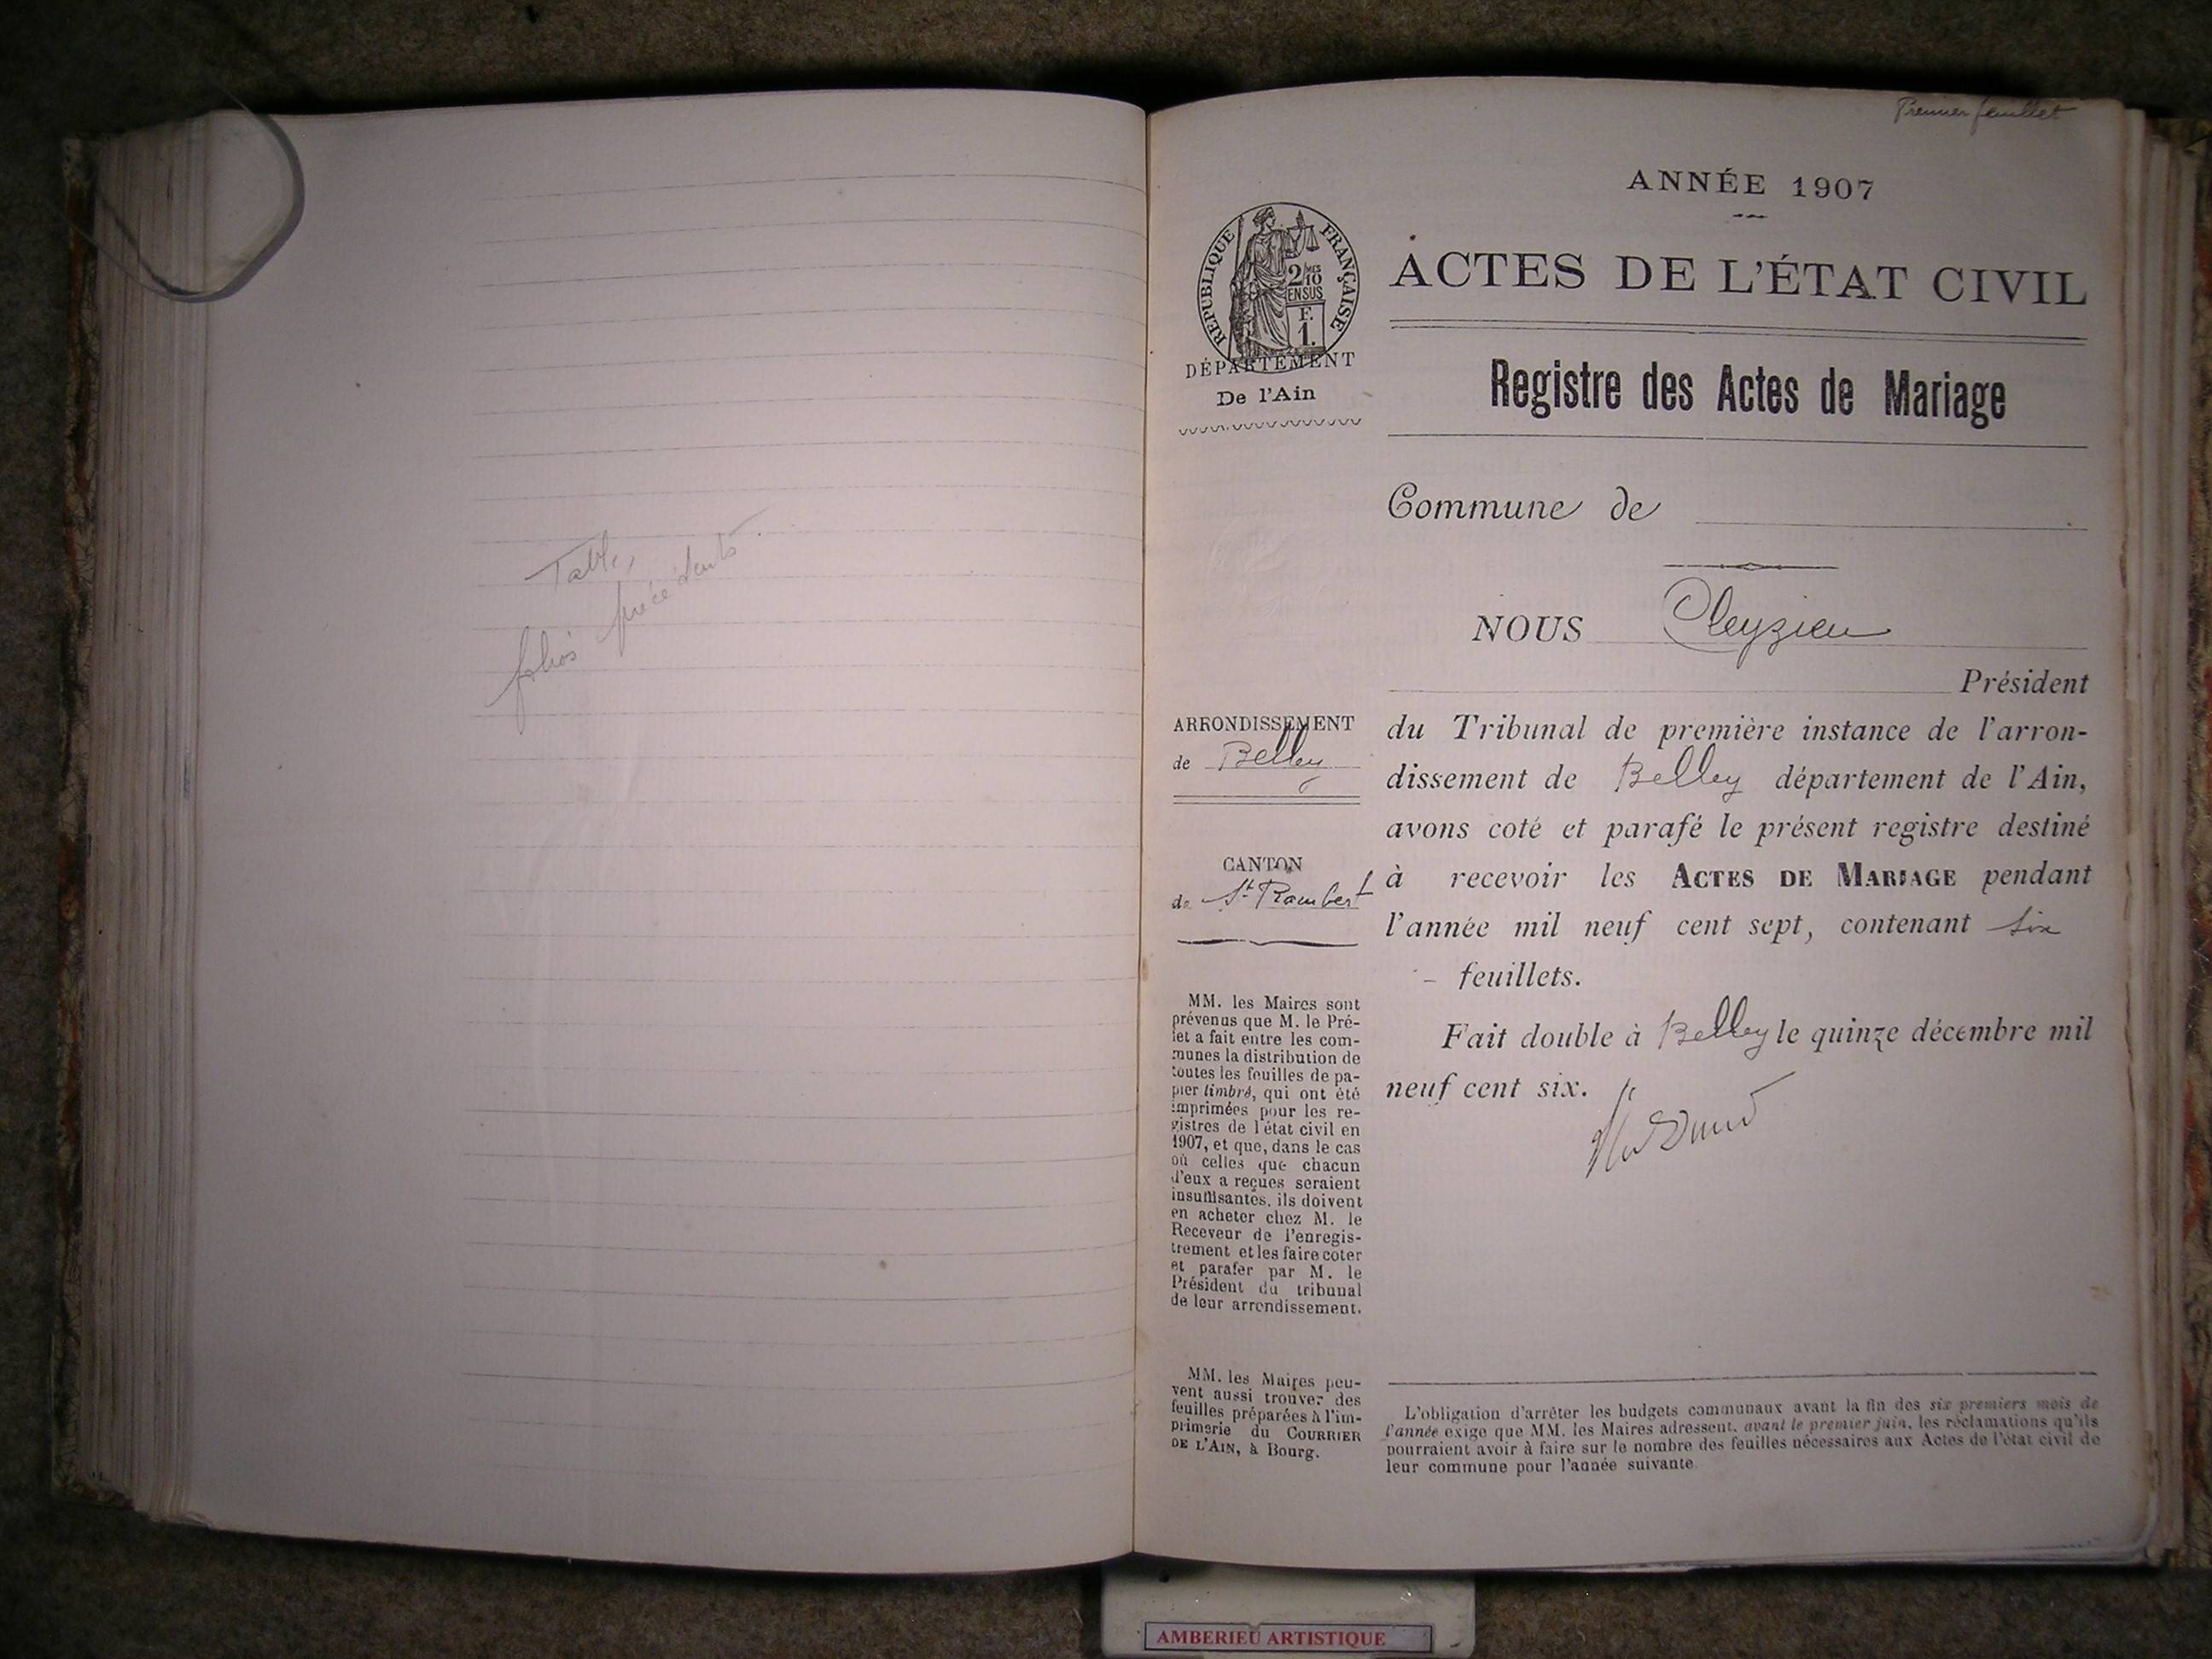 Table,
folios précédents
Premier feuillet
ANNÉE 1907
RÉPUBLIQUE FRANÇAISE
2/10 MES
EN SUS
F.
1.
DÉPARTEMENT
De l'Ain
ACTES DE L'ÉTAT CIVIL
Registre des Actes de Mariage
Commune de
NOUS Cleyzieu
Président
ARRONDISSEMENT
de Belley
CANTON
de St Rambert
du Tribunal de première instance de l'arron-
dissement de Belley département de l'Ain,
avons coté et parafé le présent registre destiné
à recevoir les ACTES DE MARIAGE pendant
l'année mil neuf cent sept, contenant six
- feuillets.
Fait double à Belley le quinze décembre mil
neuf cent six.
MM. les Maires sont
prévenus que M. le Pré-
fet a fait entre les com-
munes la distribution de
toutes les feuilles de pa-
pier timbré, qui ont été
imprimées pour les re-
gistres de l'état civil en
1907, et que, dans le cas
où celles que chacun
d'eux a reçues seraient
insuffisantes, ils doivent
en acheter chez M. le
Receveur de l'enregis-
trement et les faire coter
et parafer par M. le
Président du tribunal
de leur arrondissement.
MM. les Maires peu-
vent aussi trouver des
feuilles préparées à l'im-
primerie du COURRIER
DE L'AIN, à Bourg.
L'obligation d'arrêter les budgets communaux avant la fin des six premiers mois de
l'année exige que MM. les Maires adressent, avant le premier juin, les réclamations qu'ils
pourraient avoir à faire sur le nombre des feuilles nécessaires aux Actes de l'état civil de
leur commune pour l'année suivante.
AMBERIEU ARTISTIQUE